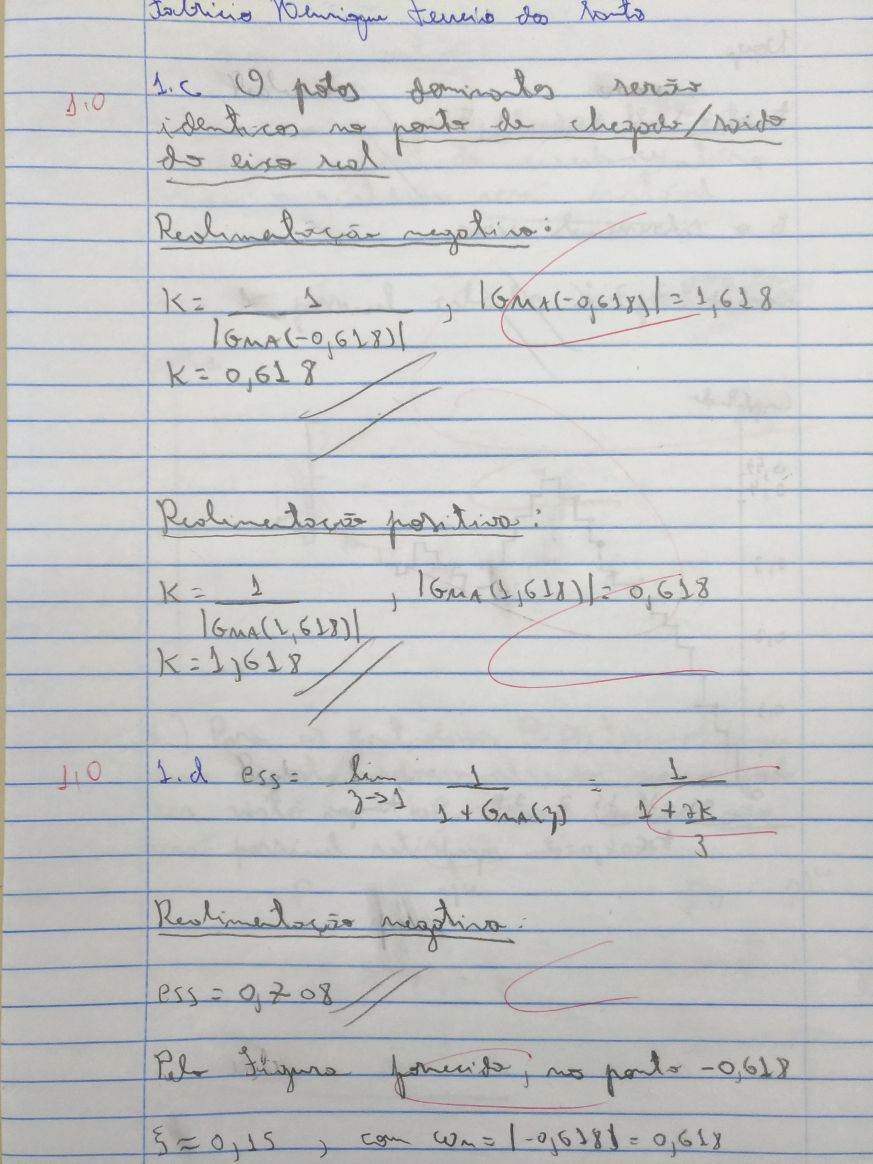 Fabricio Henrique Ferreira dos Santo
1,0
1.c O pólos dominantes serão
identicos no ponto de chegada/saida
do eixo real
Realimentação negativa:
K = 1 / |GMA(-0,618)| , |GMA(-0,618)| = 1,618
K = 0,618
Realimentação positiva:
K = 1 / |GMA(1,618)| , |GMA(1,618)| = 0,618
K = 1,618
1,0
1.d ess = lim z->1 1 / (1 + GMA(z)) = 1 / (1 + 2K/3)
Realimentação negativa:
ess = 0,708
Pela Figura fornecida, no ponto -0,618
ξ ≈ 0,15 , com ωn = |-0,618| = 0,618